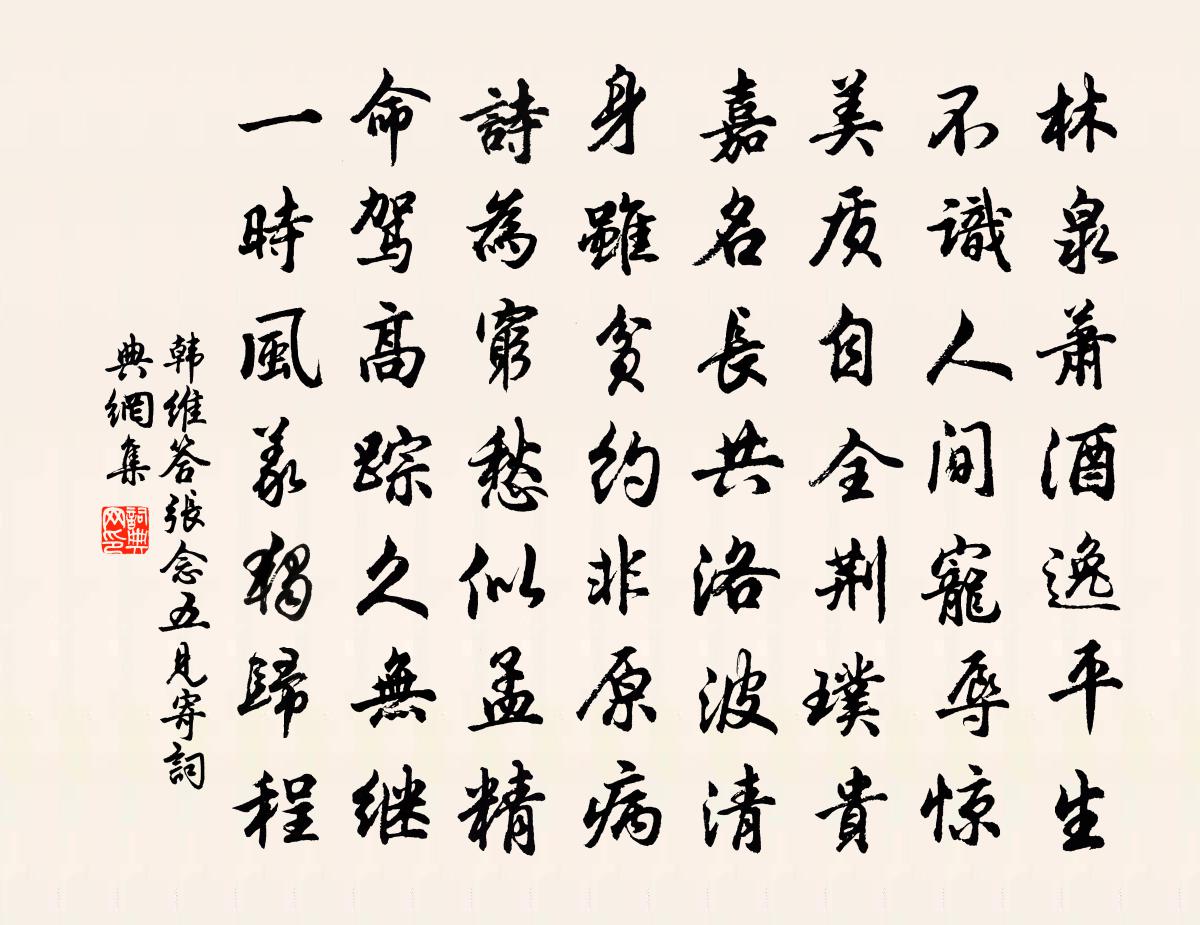 林泉萧洒逸平生
不識人间寵辱惊
美质自全荆璞貴
嘉名長共洛波清
身雖贫約非原病
詩為窮愁似孟精
命驾高踪久無继
一時風義獨歸程
韩维答張念五見寄詞
典網集
詞典
网印